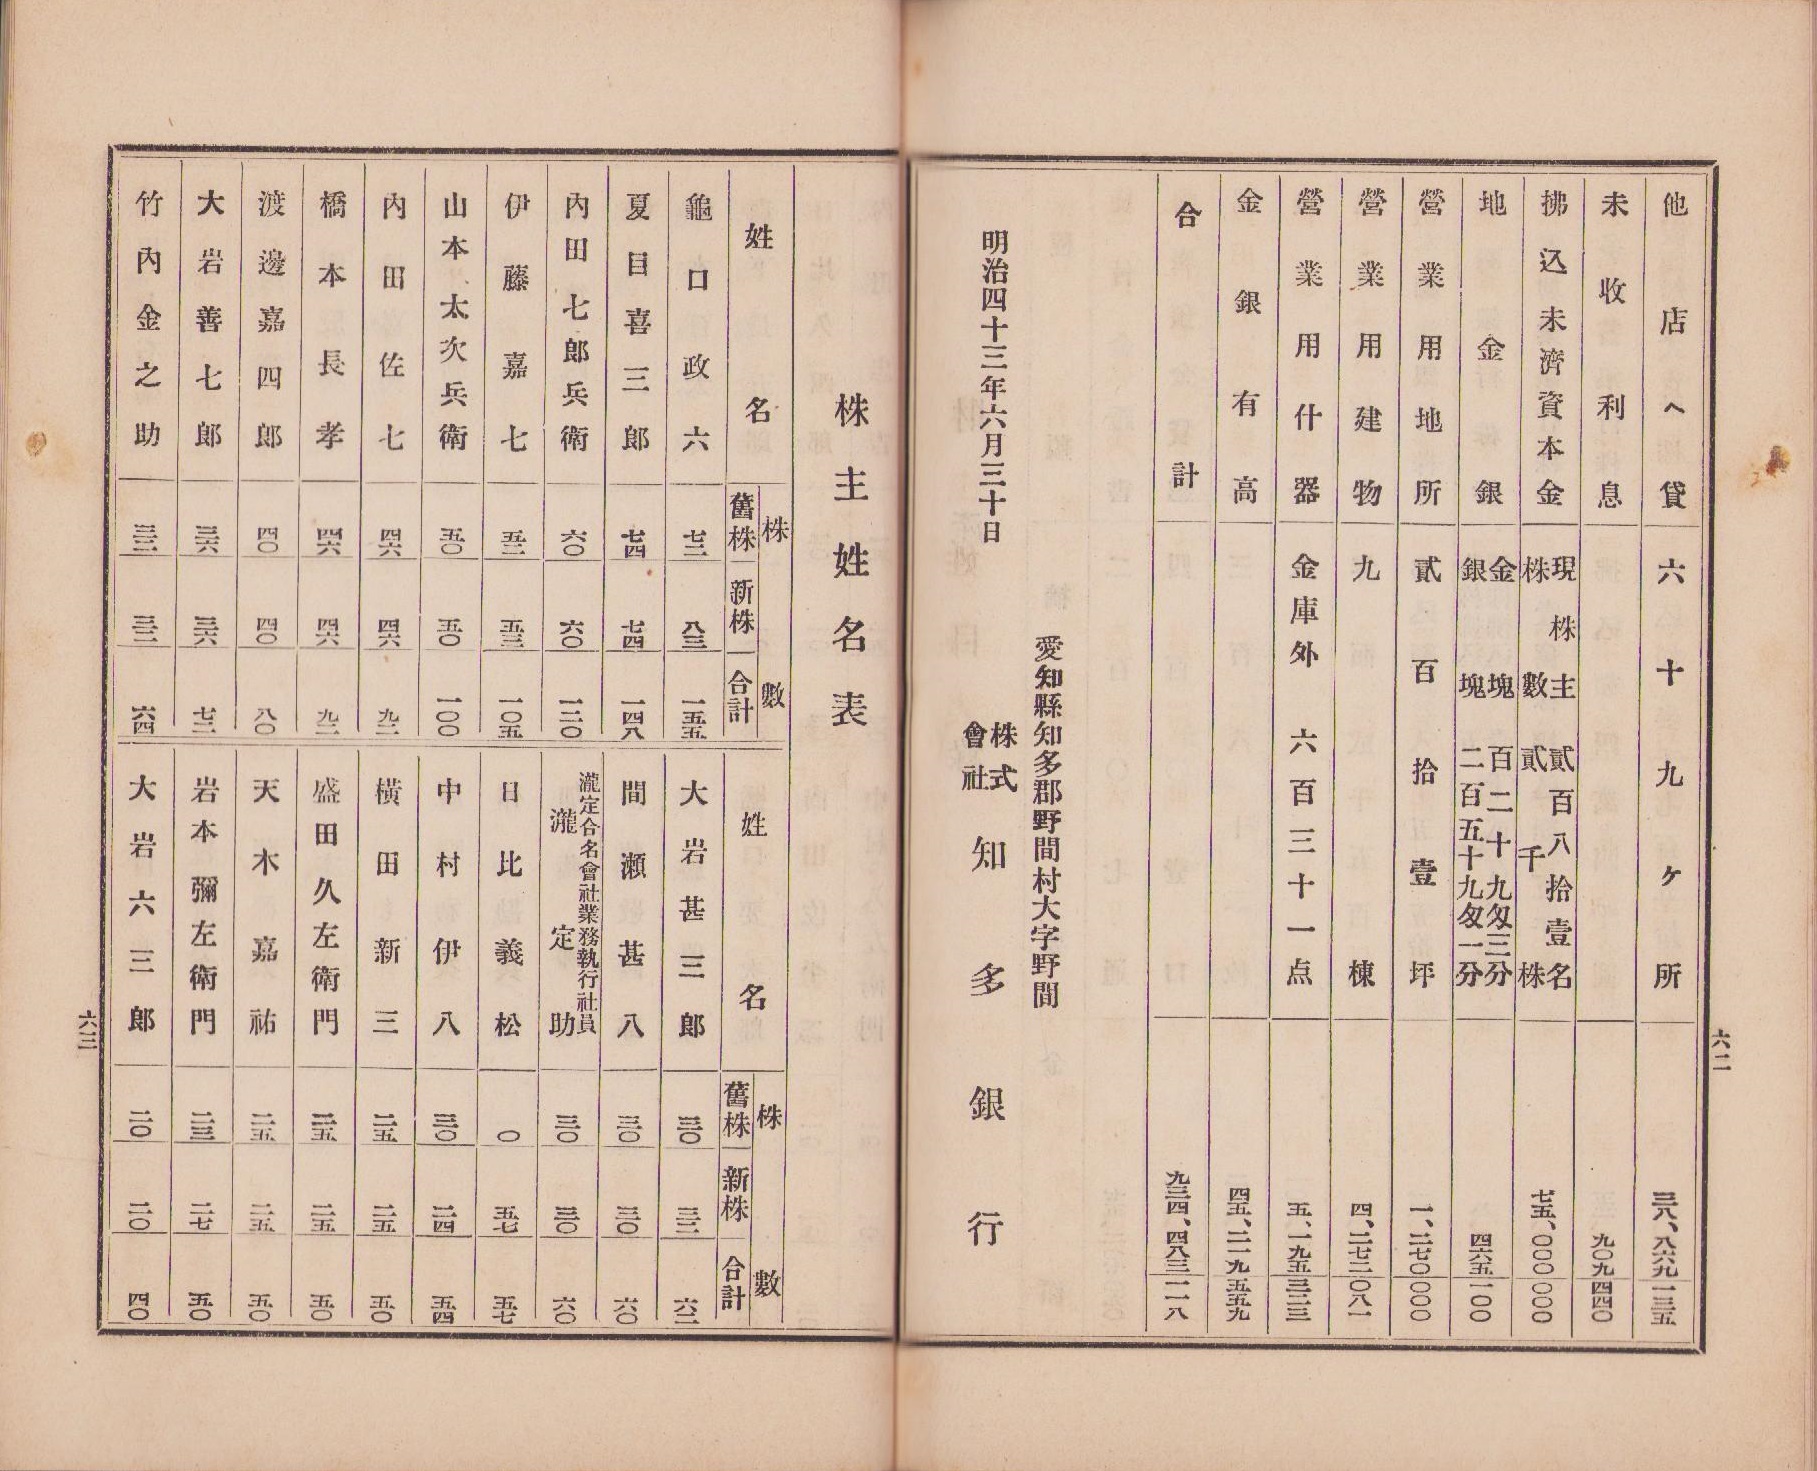 他店へ貸 六十九ヶ所 三八、八六九 一三五
未收利息 九〇九 四四〇
拂込未濟資本金 現株主貳百八拾壹名 七五、〇〇〇 〇〇〇
株數貳千株
地金銀 金塊百二十九匁三分 四六五 一〇〇
銀塊二百五十九匁一分
營業用地所 貳百拾壹坪 一、二七〇 〇〇〇
營業用建物 九棟 四、二七二 〇八一
營業用什器 金庫外六百三十一点 五、一九五 三二三
金銀有高 四五、二一九 五五九
合計 九三四、四八三 一一八
愛知縣知多郡野間村大字野間
明治四十三年六月三十日
株式會社知多銀行
六二
株主姓名表
姓名 株數
舊株 新株 合計
龜口政六 七二 八三 一五五
夏目喜三郎 七四 七四 一四八
內田七郎兵衛 六〇 六〇 一二〇
伊藤嘉七 五二 五三 一〇五
山本太次兵衛 五〇 五〇 一〇〇
內田佐七 四六 四六 九二
橋本長孝 四六 四六 九二
渡邊嘉四郎 四〇 四〇 八〇
大岩善七郎 三六 三六 七二
竹內金之助 三二 三二 六四
姓名 株數
舊株 新株 合計
大岩甚三郎 三〇 三二 六二
間瀬甚八 三〇 三〇 六〇
瀧定合名會社業務執行社員
瀧定助 三〇 三〇 六〇
日比義松 〇 五七 五七
中村伊八 三〇 二四 五四
横田新三 二五 二五 五〇
盛田久左衛門 二五 二五 五〇
天木嘉祐 二五 二五 五〇
岩本彌左衛門 二三 二七 五〇
大岩六三郎 二〇 二〇 四〇
六三